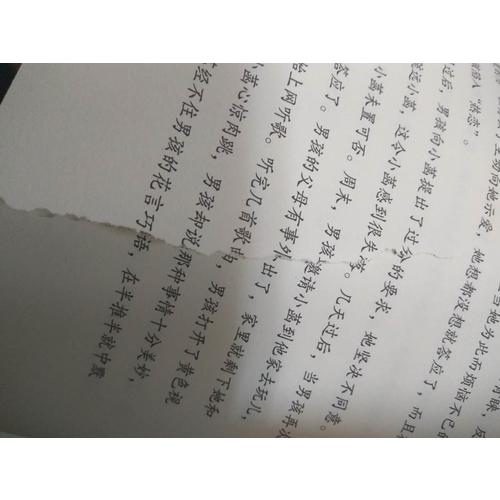 当她为此而烦恼不已的
向她示爱，她想都没想就答应了，而且
陷入“热恋”。
过后，男孩向小蔷提出了过分的要求，她坚决不同意。
小蔷，这个小蔷感到很失落。几天过后，当男孩再次
小蔷未置可否。周末，男孩邀请小蔷到他家去玩儿，
答应了。男孩的父母有事外出了，家里就剩下她和
始上网听歌。听完几首歌曲，男孩打开了黄色视
小蔷心惊肉跳，男孩却说那种事情十分美妙，
经不住男孩的花言巧语，在半推半就中献